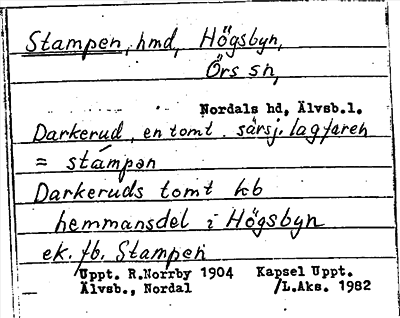 Stampen, hmd, Högsbyn,
Örs sn,
Nordals hd, Älvsb.l.
Darkerud, en tomt. särsj. lagfaren
= stámpən
Darkeruds tomt kb
hemmansdel i Högsbyn
ek. fb. Stampen
/Uppt. R.Norrby 1904 Kapsel Uppt.
Älvsb., Nordal /L.Aks. 1982